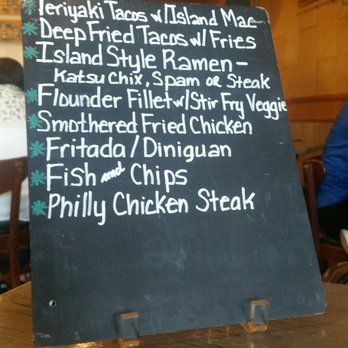 *Teriyaki Tacos w/Island Mac
*Deep Fried Tacos w/ Fries
*Island Style Ramen -
Katsu Chix, Spam or Steak
*Flounder Fillet w/Stir Fry Veggie
*Smothered Fried Chicken
*Fritada / Diniguan
*Fish and Chips
*Philly Chicken Steak